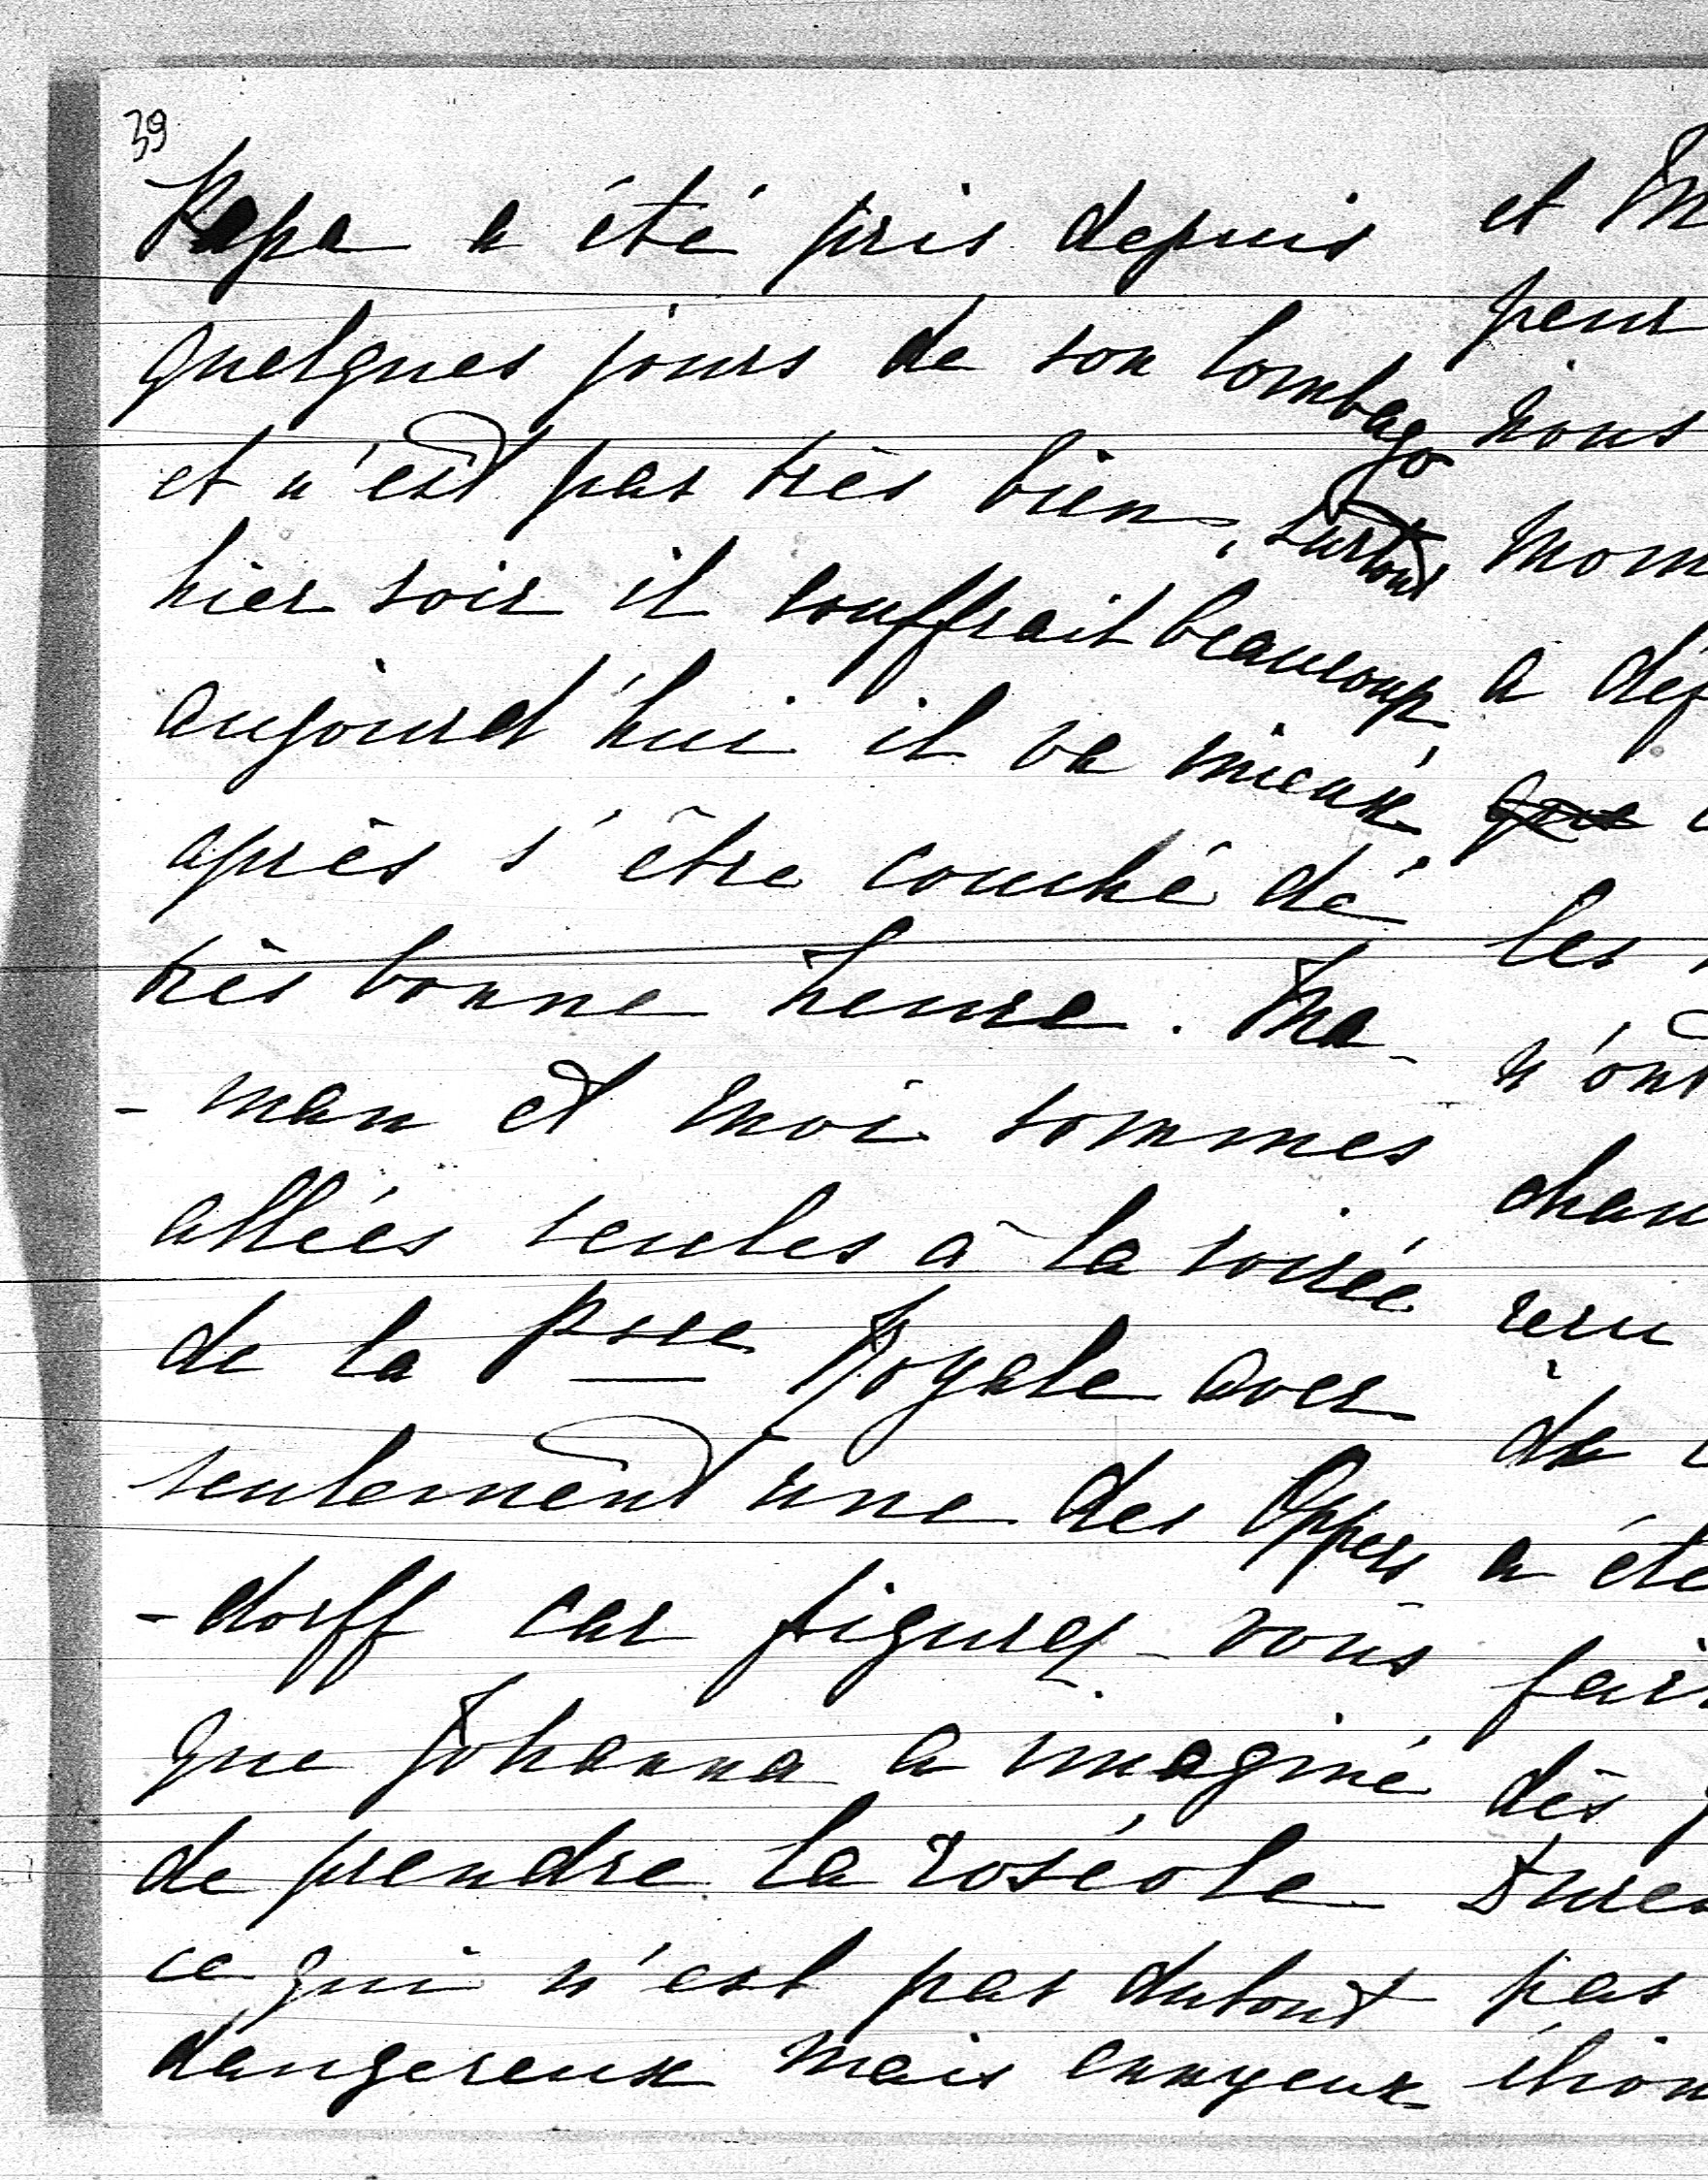 39
Papa a été pris depuis
quelques jours de son lombago
et n'est pas très bien, surtout
hier soir il souffrait beaucoup,
aujourd'hui il va mieux
après s'être couché de
très bonne heure. Ma-
-man et moi sommes
allées seules à la soirée
de la Psse Royale avec
seulement une des Oppers
-dorff car figurez-vous
que Johanna a imaginé
de prendre la roséole
ce qui n'est pas dutout
dangereux mais ennyeux
et M
peur
nous
mom
a déj
que
les
n'ont
chau
seru
de
a été
fair
dès
pas